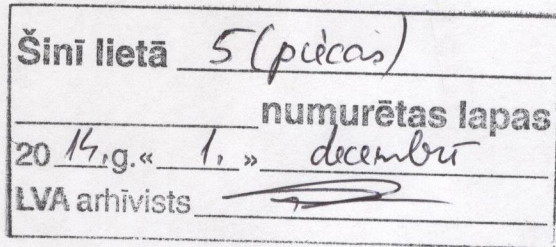 Šinī lietā 5 (piecas)
numurētas lapas
20 14. g. « 1. » decembrī
LVA arhīvists